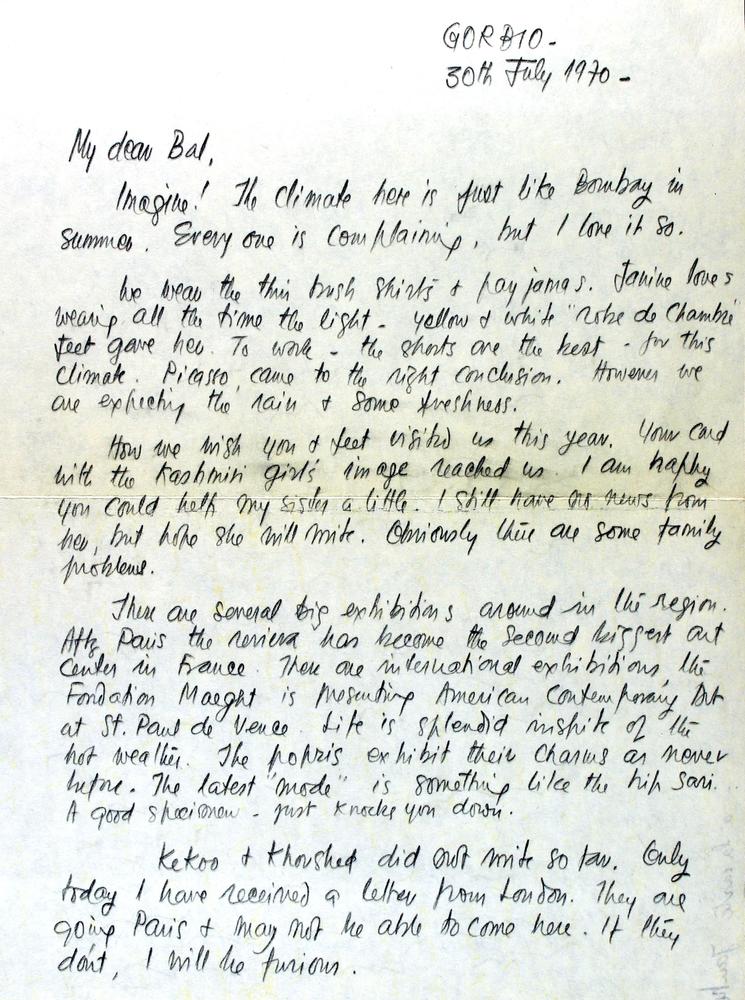 GORBIO -
30th July 1970 -
My dear Bal,
Imagine! The climate here is just like Bombay in
summer. Every one is complaining, but I love it so.
We wear the thin bush shirts & payjamas. Janine loves
wearing all the time the light - yellow & white "robe de Chambre"
feet gave her. To work - the shorts are the best - for this
climate. Picasso came to the right conclusion. However we
are expecting the rain & some freshness.
How we wish you & feet visited us this year. Your card
with the Kashmiri girl's image reached us. I am happy
you could help my sister a little. I still have no news from
her, but hope she will write. Obviously there are some family
problems.
There are several big exhibitions around in the region.
After Paris the reviera has become the second biggest art
center in France. There are international exhibitions the
Fondation Maeght is presenting American Contemporary Art
at St. Paul de Vence. Life is splendid inspite of the
hot weather. The exhibit their charms as never
before. The latest "mode" is something like the hip sari.
A good specimen - just knocks you down.
Kekoo & Khorshed did not write so far. Only
today I have received a letter from London. They are
going Paris & may not be able to come here. If they
don't, I will be furious.